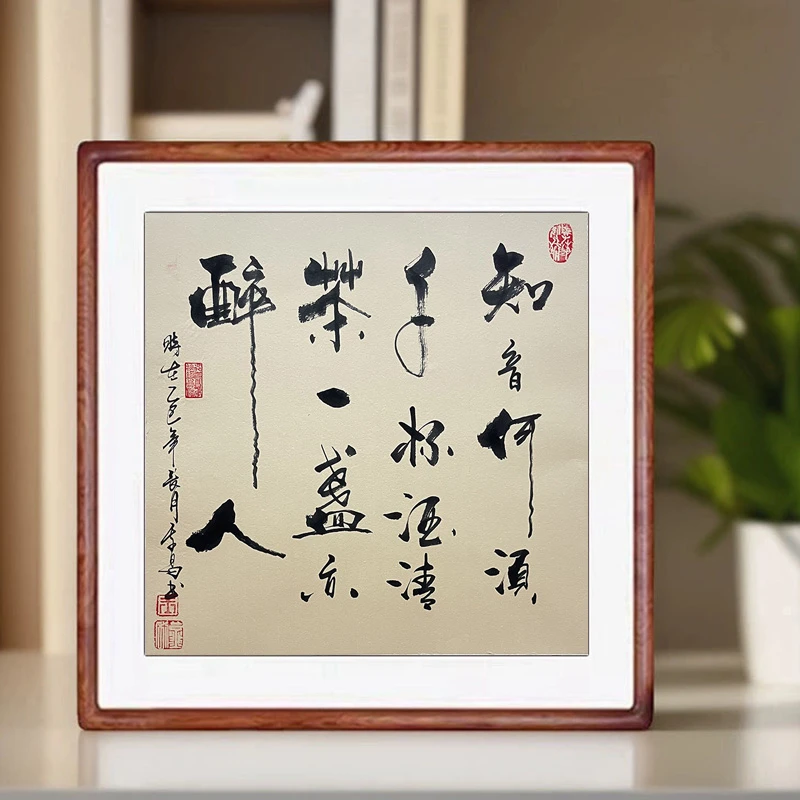 知音何须
千杯酒清
茶一盏亦
醉人
時在乙巳年
月
书